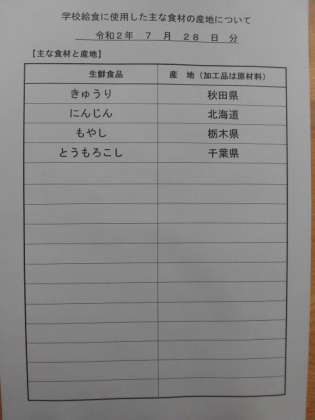 学校給食に使用した主な食材の産地について
令和2年 7 月 28 日 分
【主な食材と産地】
生鮮食品 産 地（加工品は原材料）
きゅうり 秋田県
にんじん 北海道
もやし 栃木県
とうもろこし 千葉県